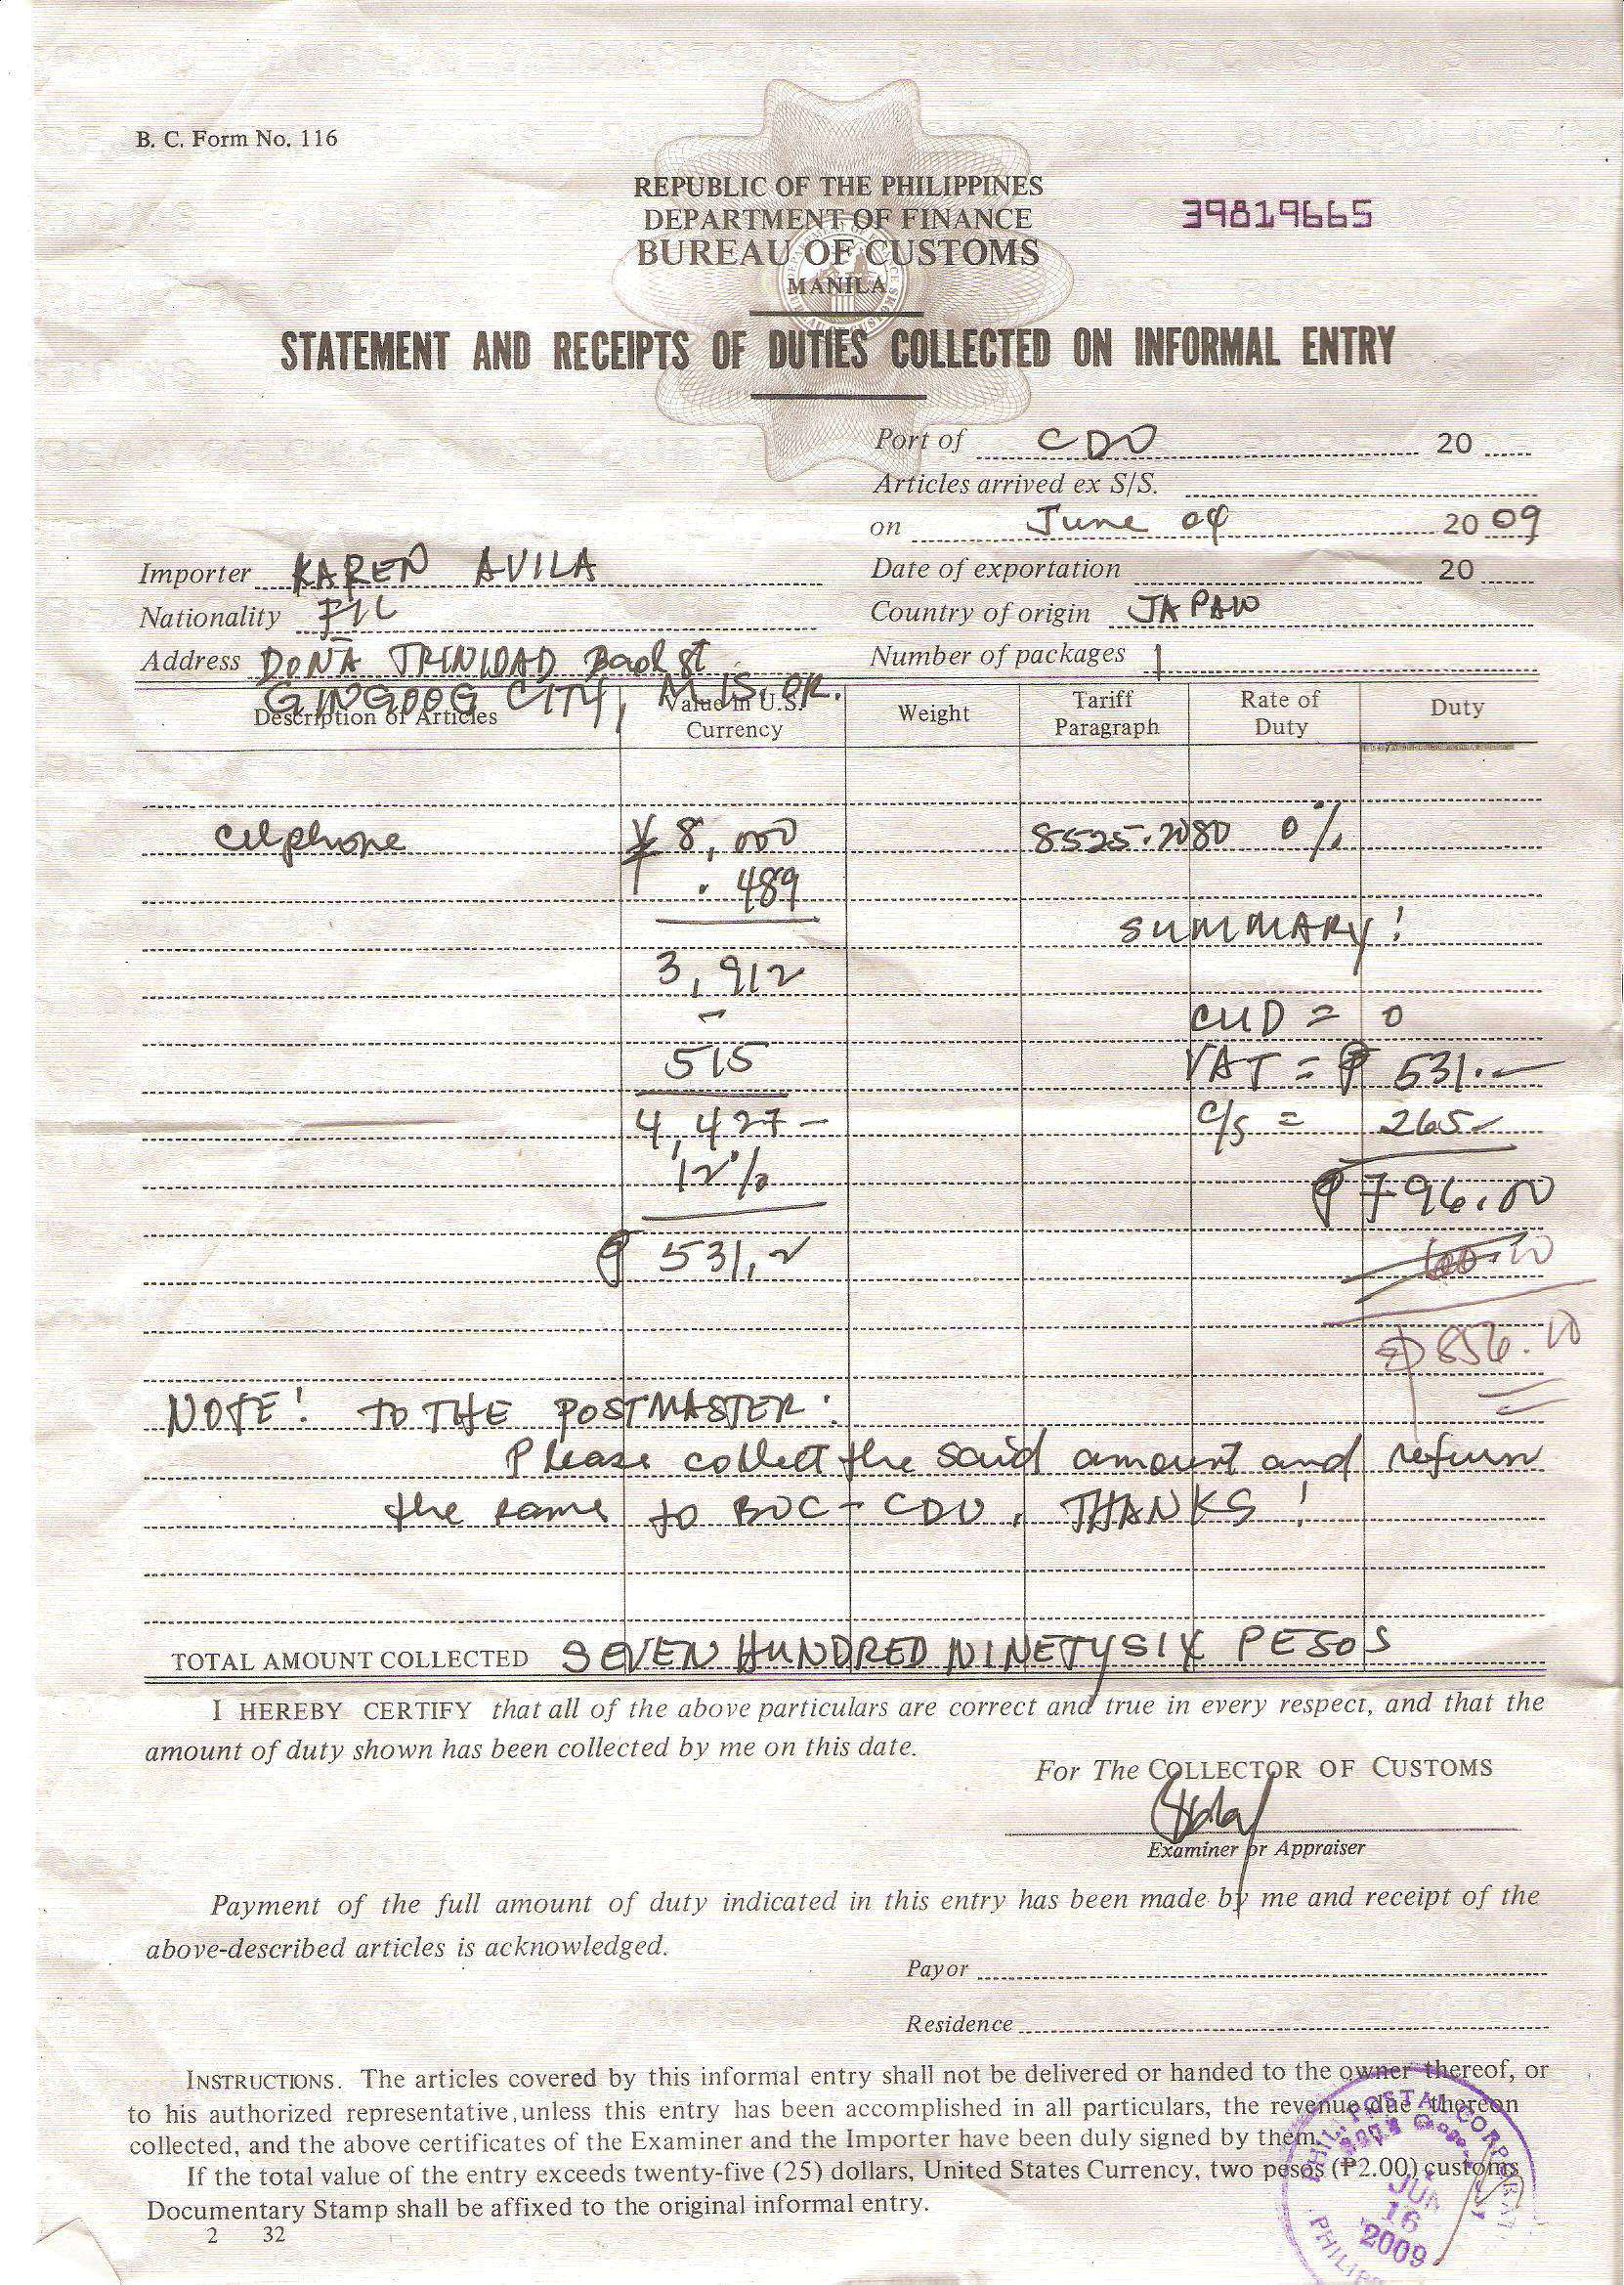 B. C. Form No. 116
REPUBLIC OF THE PHILIPPINES
DEPARTMENT OF FINANCE
BUREAU OF CUSTOMS
MANILA
39819665
STATEMENT AND RECEIPTS OF DUTIES COLLECTED ON INFORMAL ENTRY
Port of CDO 20
Articles arrived ex S/S.
on June 04 2009
Importer KAREN AVILA
Date of exportation 20
Nationality FIL
Country of origin JAPAN
Address DONA TRINIDAD St
Number of packages 1
GINGOOG CITY, MIS. OR.
Description of Articles Value in U.S. Currency Weight Tariff Paragraph Rate of Duty Duty
Celphone ¥ 8,000 8525.2080 0%
. 489
SUMMARY!
3,912
CUD = 0
515
VAT = ₱ 531.-
4,427-
C/S = 265-
12%
₱ 796.00
₱ 531.2
60.00
₱ 856.00
NOTE! TO THE POSTMASTER:
Please collect the said amount and return
the same to BOC - CDO, THANKS!
TOTAL AMOUNT COLLECTED SEVEN HUNDRED NINETY SIX PESOS
I HEREBY CERTIFY that all of the above particulars are correct and true in every respect, and that the
amount of duty shown has been collected by me on this date.
For The COLLECTOR OF CUSTOMS
Examiner or Appraiser
Payment of the full amount of duty indicated in this entry has been made by me and receipt of the
above-described articles is acknowledged.
Payor
Residence
INSTRUCTIONS. The articles covered by this informal entry shall not be delivered or handed to the owner thereof, or
to his authorized representative, unless this entry has been accomplished in all particulars, the revenue due thereon
collected, and the above certificates of the Examiner and the Importer have been duly signed by them.
If the total value of the entry exceeds twenty-five (25) dollars, United States Currency, two pesos (₱2.00) customs
Documentary Stamp shall be affixed to the original informal entry.
2 32
PHIL POSTAL CORPORAT
JUN
16
2009